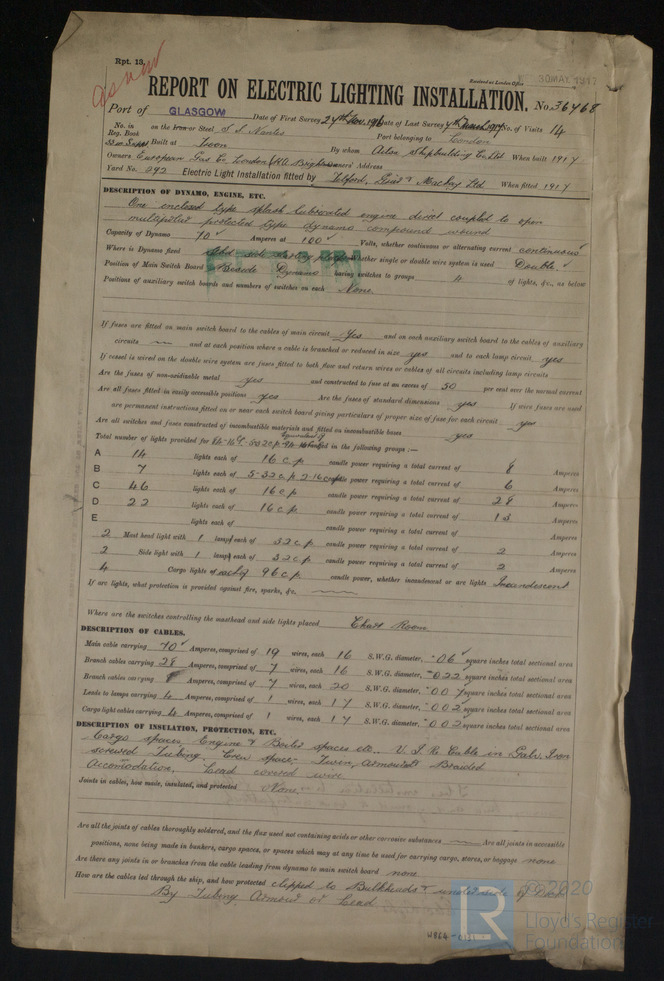 Rpt. 13.
as now
Received at London Office 30 MAY 1917
REPORT ON ELECTRIC LIGHTING INSTALLATION. No. 36468
Port of GLASGOW Date of First Survey 24th Nov. 1916 Date of Last Survey 4th 1917 No. of Visits 14
No. in Reg. Book on the Iron or Steel S.S. Nantes Port belonging to London
Built at Troon By whom Ailsa Shipbuilding Co Ltd When built 1917
Owners European Gas Co. London Owners' Address
Yard No. 292 Electric Light Installation fitted by Telford, Grier & Mackay Ltd When fitted 1917
DESCRIPTION OF DYNAMO, ENGINE, ETC.
One enclosed type splash lubricated engine direct coupled to open
multipolar protected type dynamo compound wound
Capacity of Dynamo 70 Amperes at 100 Volts, whether continuous or alternating current continuous
Where is Dynamo fixed Stbd side starting platform whether single or double wire system is used Double
Position of Main Switch Board Beside Dynamo having switches to groups 4 of lights, &c., as below
Positions of auxiliary switch boards and numbers of switches on each None
If fuses are fitted on main switch board to the cables of main circuit Yes and on each auxiliary switch board to the cables of auxiliary
circuits — and at each position where a cable is branched or reduced in size yes and to each lamp circuit yes
If vessel is wired on the double wire system are fuses fitted to both flow and return wires or cables of all circuits including lamp circuits
Are the fuses of non-oxidizable metal yes and constructed to fuse at an excess of 50 per cent over the normal current
Are all fuses fitted in easily accessible positions yes Are the fuses of standard dimensions yes If wire fuses are used
are permanent instructions fitted on or near each switch board giving particulars of proper size of fuse for each circuit yes
Are all switches and fuses constructed of incombustible materials and fitted on incombustible bases yes
Total number of lights provided for in the following groups :—
A 14 lights each of 16 c.p candle power requiring a total current of 8 Amperes
B 7 lights each of 5-32 c.p 2-16 c.p candle power requiring a total current of 6 Amperes
C 46 lights each of 16 c.p candle power requiring a total current of 28 Amperes
D 22 lights each of 16 c.p candle power requiring a total current of 13 Amperes
E lights each of candle power requiring a total current of Amperes
2 Mast head light with 1 lamp each of 32 c.p candle power requiring a total current of 2 Amperes
2 Side light with 1 lamp each of 32 c.p candle power requiring a total current of 2 Amperes
4 Cargo lights of each of 96 c.p candle power, whether incandescent or arc lights Incandescent
If arc lights, what protection is provided against fire, sparks, &c. —
Where are the switches controlling the masthead and side lights placed Chart Room
DESCRIPTION OF CABLES.
Main cable carrying 70 Amperes, comprised of 19 wires, each 16 S.W.G. diameter, .06 square inches total sectional area
Branch cables carrying 28 Amperes, comprised of 7 wires, each 16 S.W.G. diameter, .022 square inches total sectional area
Branch cables carrying 8 Amperes, comprised of 7 wires, each 20 S.W.G. diameter, .007 square inches total sectional area
Leads to lamps carrying 4 Amperes, comprised of 1 wires, each 17 S.W.G. diameter, .002 square inches total sectional area
Cargo light cables carrying 4 Amperes, comprised of 1 wires, each 17 S.W.G. diameter, .002 square inches total sectional area
DESCRIPTION OF INSULATION, PROTECTION, ETC.
Cargo spaces, Engine & Boiler spaces etc. V.I.R. Cable in Galv. Iron
screwed Tubing. Crew space- Twin, armoured Braided
Accomodation, Lead covered wire
Joints in cables, how made, insulated, and protected None
Are all the joints of cables thoroughly soldered, and the flux used not containing acids or other corrosive substances — Are all joints in accessible
positions, none being made in bunkers, cargo spaces, or spaces which may at any time be used for carrying cargo, stores, or baggage none
Are there any joints in or branches from the cable leading from dynamo to main switch board none
How are the cables led through the ship, and how protected clipped to Bulkheads & underside of Deck
By Tubing, Armour or Lead
W864-0121
© 2020
Lloyd's Register
Foundation
LR